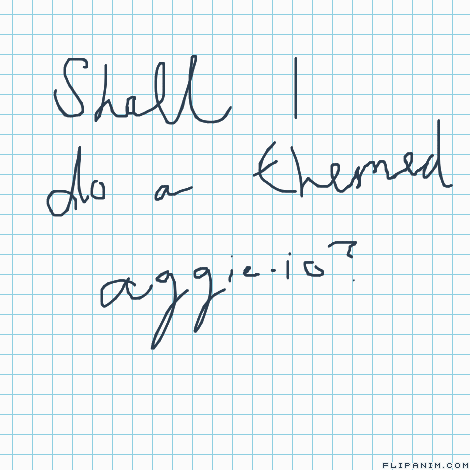 Shall I
do a themed
aggie.io?
FLIPANIM.COM